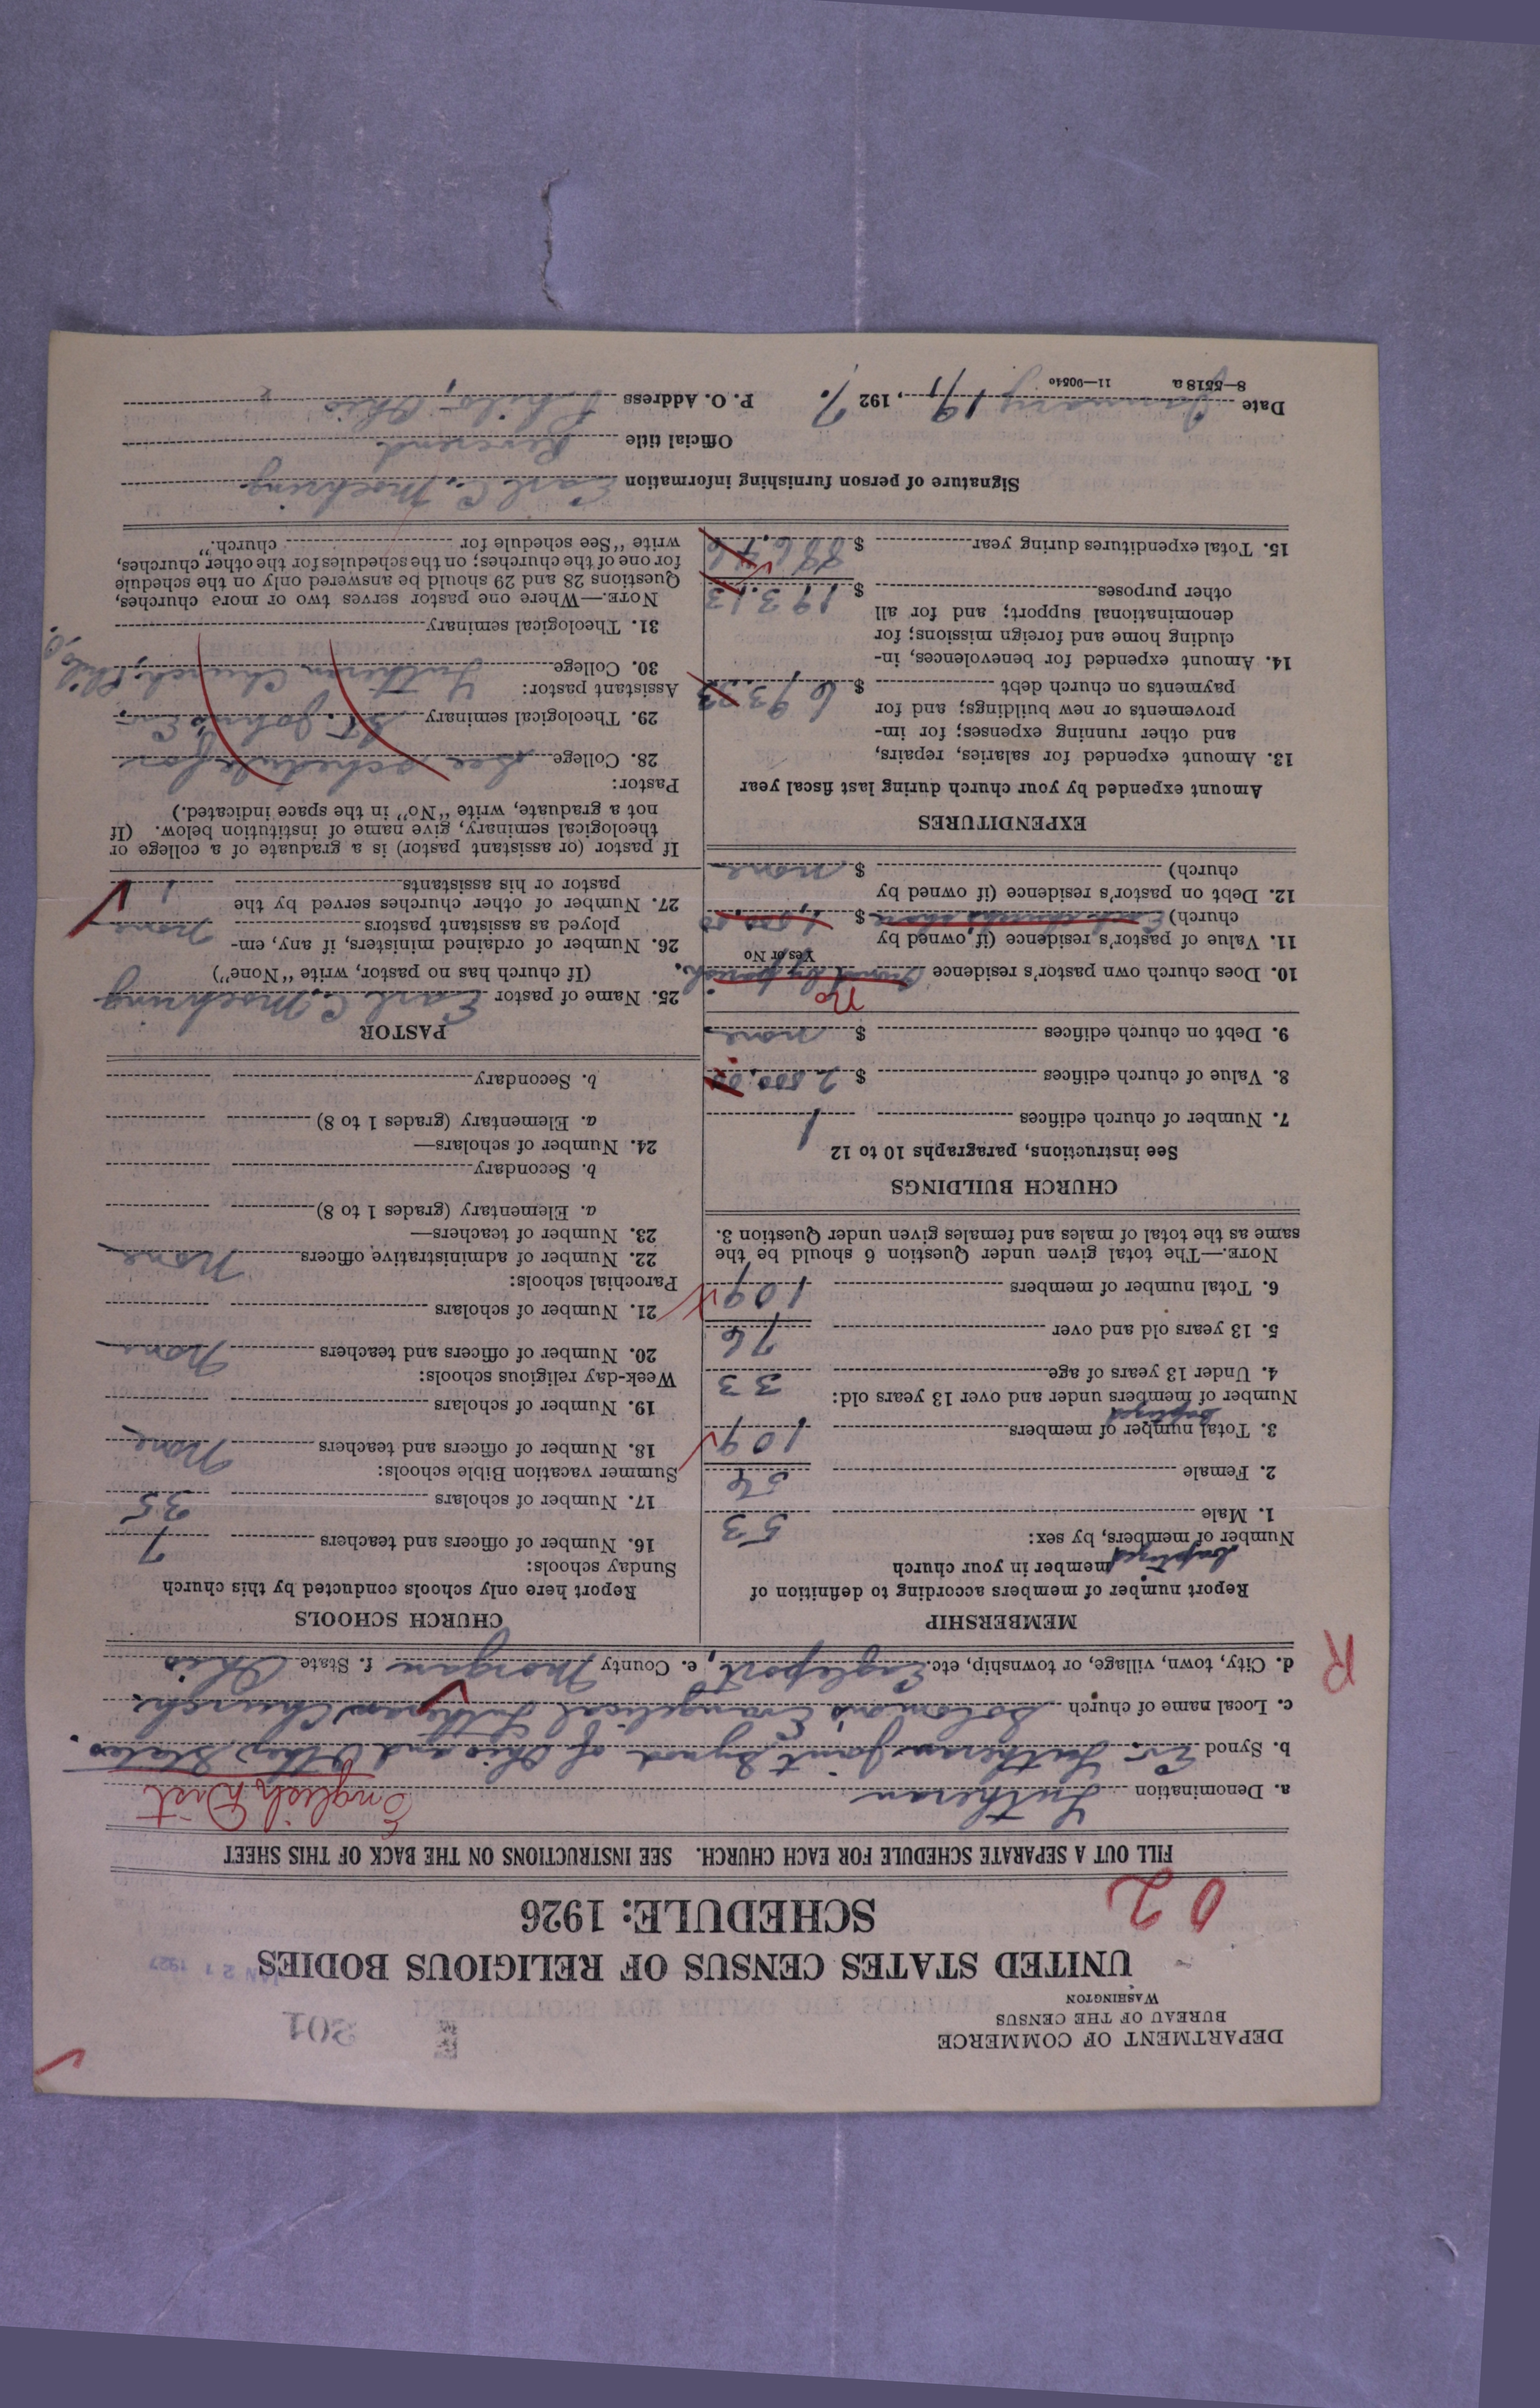 DEPARTMENT OF COMMERCE
BUREAU OF THE CENSUS
WASHINGTON
301
UNITED STATES CENSUS OF RELIGIOUS BODIES
JAN 21 1927
SCHEDULE: 1926
02
FILL OUT A SEPARATE SCHEDULE FOR EACH CHURCH. SEE INSTRUCTIONS ON THE BACK OF THIS SHEET
a. Denomination Lutheran English Dist
b. Synod Ev. Lutheran Joint Synod of Ohio and Other States.
c. Local name of church Solomon's Evangelical Lutheran Church.
d. City, town, village, or township, etc. Eagleport, e. County Morgan f. State Ohio
R
MEMBERSHIP
Report number of members according to definition of
baptized member in your church
Number of members, by sex:
1. Male 53
2. Female 56
3. Total number of baptized members 109
Number of members under and over 13 years old:
4. Under 13 years of age 33
5. 13 years old and over 76
6. Total number of members 109
NOTE.—The total given under Question 6 should be the
same as the total of males and females given under Question 3.
CHURCH BUILDINGS
See instructions, paragraphs 10 to 12
7. Number of church edifices 1
8. Value of church edifices $ 2500.00
9. Debt on church edifices $ none
10. Does church own pastor's residence owned by parish. No
Yes or No
11. Value of pastor's residence (if owned by
church) Each church's share $ 1,500.00
12. Debt on pastor's residence (if owned by
church) $ none
EXPENDITURES
Amount expended by your church during last fiscal year
13. Amount expended for salaries, repairs,
and other running expenses; for im-
provements or new buildings; and for
payments on church debt $ 693.33
14. Amount expended for benevolences, in-
cluding home and foreign missions; for
denominational support; and for all
other purposes $ 193.13
15. Total expenditures during year $ 886.46
CHURCH SCHOOLS
Report here only schools conducted by this church
Sunday schools:
16. Number of officers and teachers 7
17. Number of scholars 35
Summer vacation Bible schools:
18. Number of officers and teachers None
19. Number of scholars
Week-day religious schools:
20. Number of officers and teachers None
21. Number of scholars
Parochial schools:
22. Number of administrative officers None
23. Number of teachers—
a. Elementary (grades 1 to 8)
b. Secondary
24. Number of scholars—
a. Elementary (grades 1 to 8)
b. Secondary
PASTOR
25. Name of pastor Earl C. Moehring
(If church has no pastor, write "None")
26. Number of ordained ministers, if any, em-
ployed as assistant pastors None
27. Number of other churches served by the
pastor or his assistants 1
If pastor (or assistant pastor) is a graduate of a college or
theological seminary, give name of institution below. (If
not a graduate, write "No" in the space indicated.)
Pastor:
28. College See schedule for
29. Theological seminary St. John's Ev.
Assistant pastor:
30. College Lutheran Church, Philo, O.
31. Theological seminary
NOTE.—Where one pastor serves two or more churches,
Questions 28 and 29 should be answered only on the schedule
for one of the churches; on the schedules for the other churches,
write "See schedule for church."
Signature of person furnishing information Earl C. Moehring
Official title Reverend
Date January 19, 1927. P. O. Address Philo, Ohio
8—5518a 11—9054o